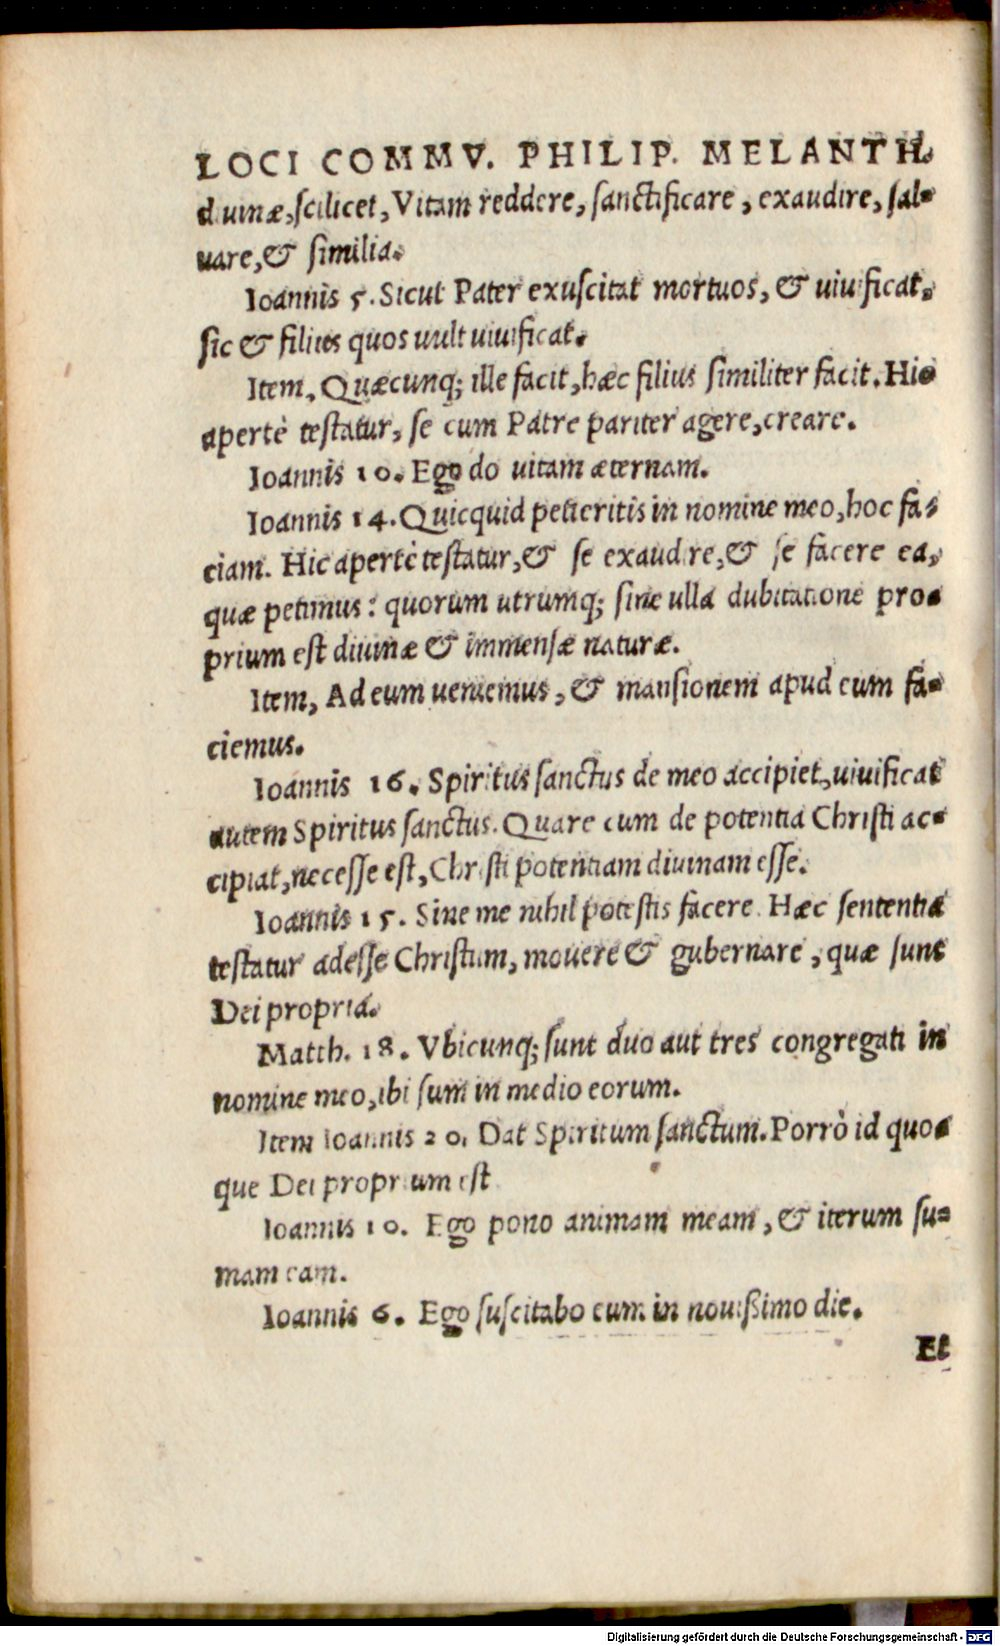 LOCI COMMV. PHILIP. MELANTH.
diuinæ, scilicet, Vitam reddere, sanctificare, exaudire, sal-
uare, & similia.
Ioannis 5. Sicut Pater exuscitat mortuos, & uiuificat,
sic & filius quos uult uiuificat.
Item, Quæcunq; ille facit, hæc filius similiter facit. Hic
apertè testatur, se cum Patre pariter agere, creare.
Ioannis 10. Ego do uitam æternam.
Ioannis 14. Quicquid petieritis in nomine meo, hoc fa-
ciam. Hic apertè testatur, & se exaudire, & se facere ea,
quæ petimus: quorum utrumq; sine ulla dubitatione pro-
prium est diuinæ & immensæ naturæ.
Item, Ad eum ueniemus, & mansionem apud eum fa-
ciemus.
Ioannis 16. Spiritus sanctus de meo accipiet, uiuificat
autem Spiritus sanctus. Quare cum de potentia Christi ac-
cipiat, necesse est, Christi potentiam diuinam esse.
Ioannis 15. Sine me nihil potestis facere. Hæc sententia
testatur adesse Christum, mouere & gubernare, quæ sunt
Dei propria.
Matth. 18. Vbicunq; sunt duo aut tres congregati in
nomine meo, ibi sum in medio eorum.
Item Ioannis 20. Dat Spiritum sanctum. Porrò id quo-
que Dei proprium est
Ioannis 10. Ego pono animam meam, & iterum su-
mam eam.
Ioannis 6. Ego suscitabo eum in nouißimo die.
Et
Digitalisierung gefördert durch die Deutsche Forschungsgemeinschaft - DFG